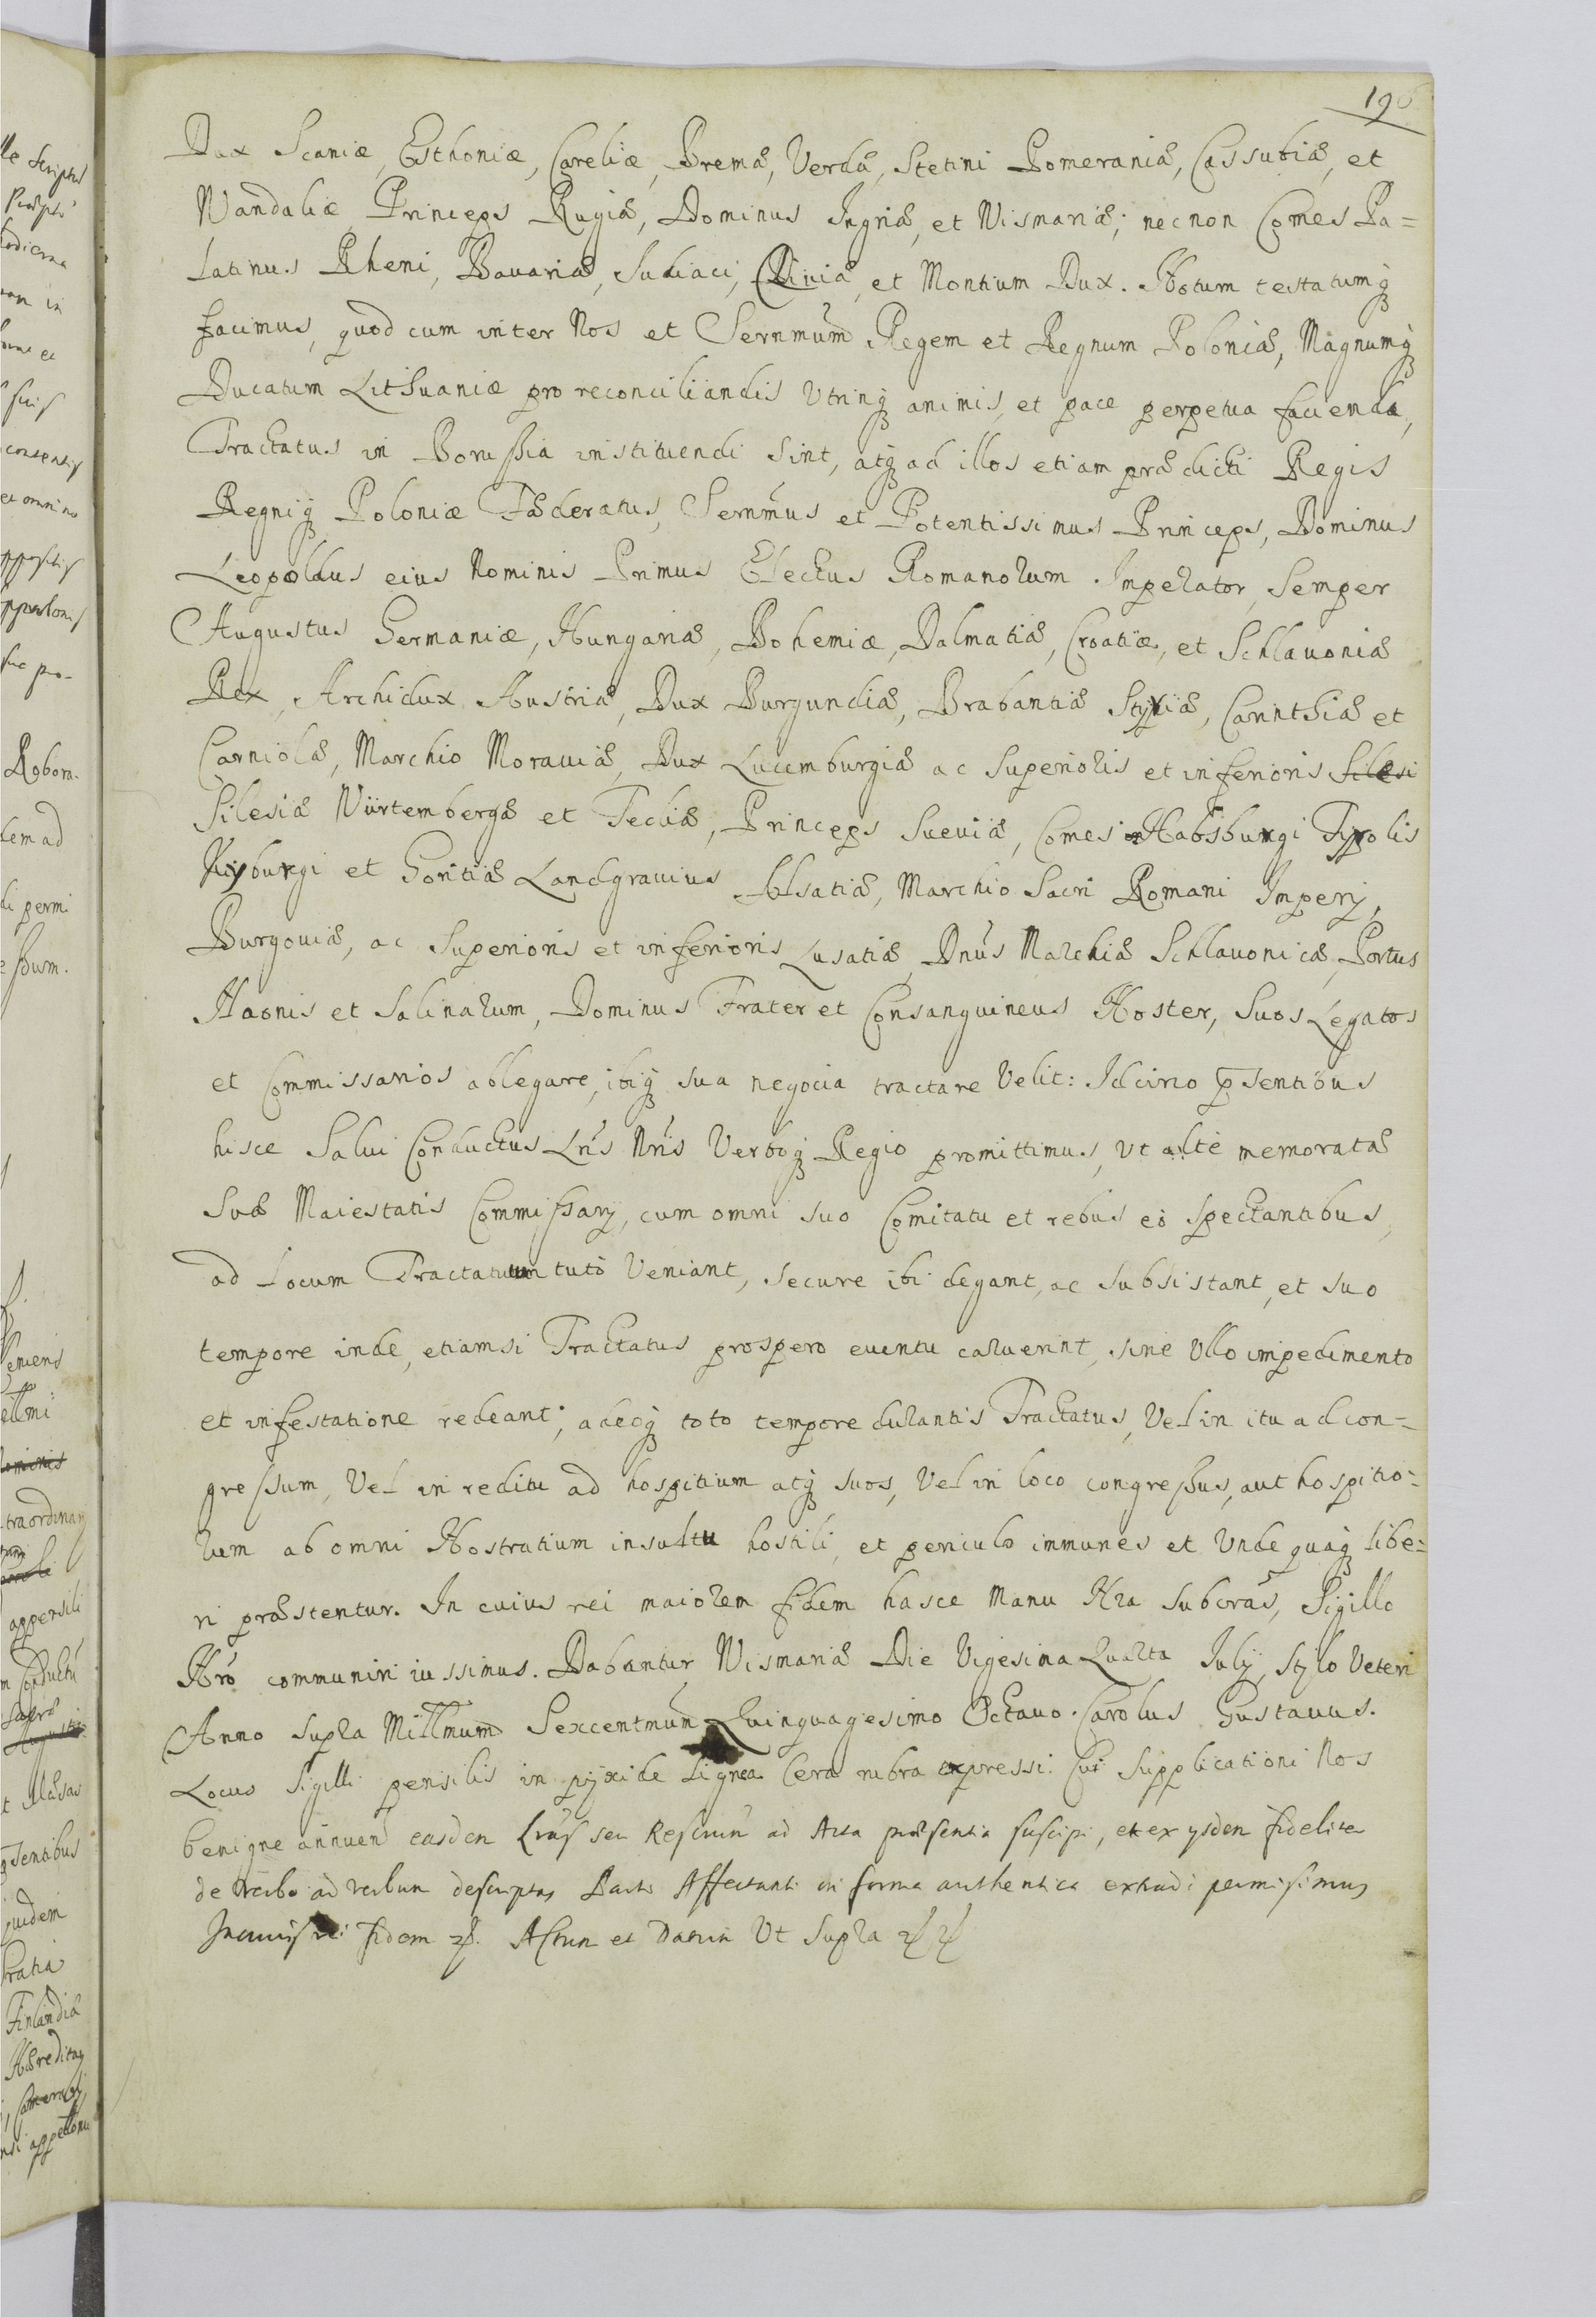 196
Dux Scaniæ, Esthoniæ, Careliæ, Bremæ, Verdæ, Stetini Pomeraniæ, Cassubiæ, et
Wandaliæ Princeps Rugiæ, Dominus Ingriæ, et Wismariæ; nec non Comes Pa=
latinus Rheni, Bavariæ, Juliaci, Cliviæ, et Montium Dux. Notum testatumq
facimus, quod cum inter Nos et Sernmum Regem et Regnum Poloniæ, Magnumq
Ducatum Lithuaniæ pro reconciliandis Utrinq animis, et pace perpetua facienda,
Tractatus in Borussia instituendi sint, atq ad illos etiam prædicti Regis
Regniq Poloniæ Fæderatus, Sernmus et Potentissimus Princeps, Dominus
Leopoldus eius Nominis Primus Electus Romanorum Imperator, Semper
Augustus Germaniæ, Hungariæ, Bohemiæ, Dalmatiæ, Croatiæ, et Schlavoniæ
Rex, Archidux Austriæ, Dux Burgundiæ, Brabantiæ Styriæ, Carinthiæ et
Carniolæ, Marchio Moraviæ, Dux Lucemburgiæ ac Superioris et inferioris Silesi
Silesiæ Würtembergæ et Teckæ, Princeps Sueviæ, Comes Habsburgi Tyrolis
Kyburgi et Goritiæ Landgravius Alsatiæ, Marchio Sacri Romani Imperij,
Burgoviæ, ac Superioris et inferioris Lusatiæ, Dnus Marchiæ Schlavonicæ, Portus
Naonis et Salinarum, Dominus Frater et Consanguineus Noster, Suos Legatos
et Commissarios ablegare, ibiq sua negocia tractare Velit: Idcirco psentibus
hisce Salvi Conductus Lris Nris Verboq Regio promittimus, Ut alte memoratæ
Suæ Maiestatis Commissarij, cum omni suo Comitatu et rebus eo spectantibus,
ad Locum Tractatuum tuto Veniant, secure ibi degant, ac subsistant, et suo
tempore inde, etiamsi Tractatus prospero eventu caruerint, sine Ullo impedimento
et infestatione redeant; adeoq toto tempore durantis Tractatus, Vel in itu ad con=
gressum, Vel in reditu ad hospitium atq suos, Vel in loco congressus, aut hospitio=
rum ab omni Nostratium insultu hostili, et periculo immunes et Undequaq libe=
ri præstentur. In cuius rei maiorem fidem hasce Manu Nra Subscras, Sigillo
Nro communiri iussimus. Dabantur Wismariæ Die Vigesima Quarta Julij, Stylo Veteri
Anno supra Millmum Sexcentmum Quinquagesimo Octavo. Carolus Gustavus.
Locus Sigilli pensilis in pyxide Lignea Cera rubra expressi. Cui Supplicationi Nos
benigne annuend easdem Lras seu Rescrium ad Acta præsentia suscipi, et ex ijsdem fideliter
de verbo ad verbum descriptas Parti Affectanti in forma authentica extradi permisimus
In cuius rei fidem Actum et Datum Ut Supra